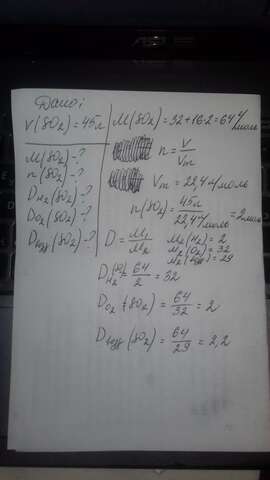 Дано:
V(SO₂)=45л
M(SO₂)-?
n(SO₂)-?
D H₂(SO₂)-?
D O₂(SO₂)-?
D возд(SO₂)-?
M(SO₂)=32+16·2=64 г/моль
n = V/Vm
Vm = 22,4 л/моль
n(SO₂) = 45л / 22,4 л/моль = 2 моль
D = M₁/M₂
M₂(H₂)=2
M₂(O₂)=32
M₂(возд)=29
D H₂(SO₂) = 64/2 = 32
D O₂(SO₂) = 64/32 = 2
D возд(SO₂) = 64/29 = 2,2